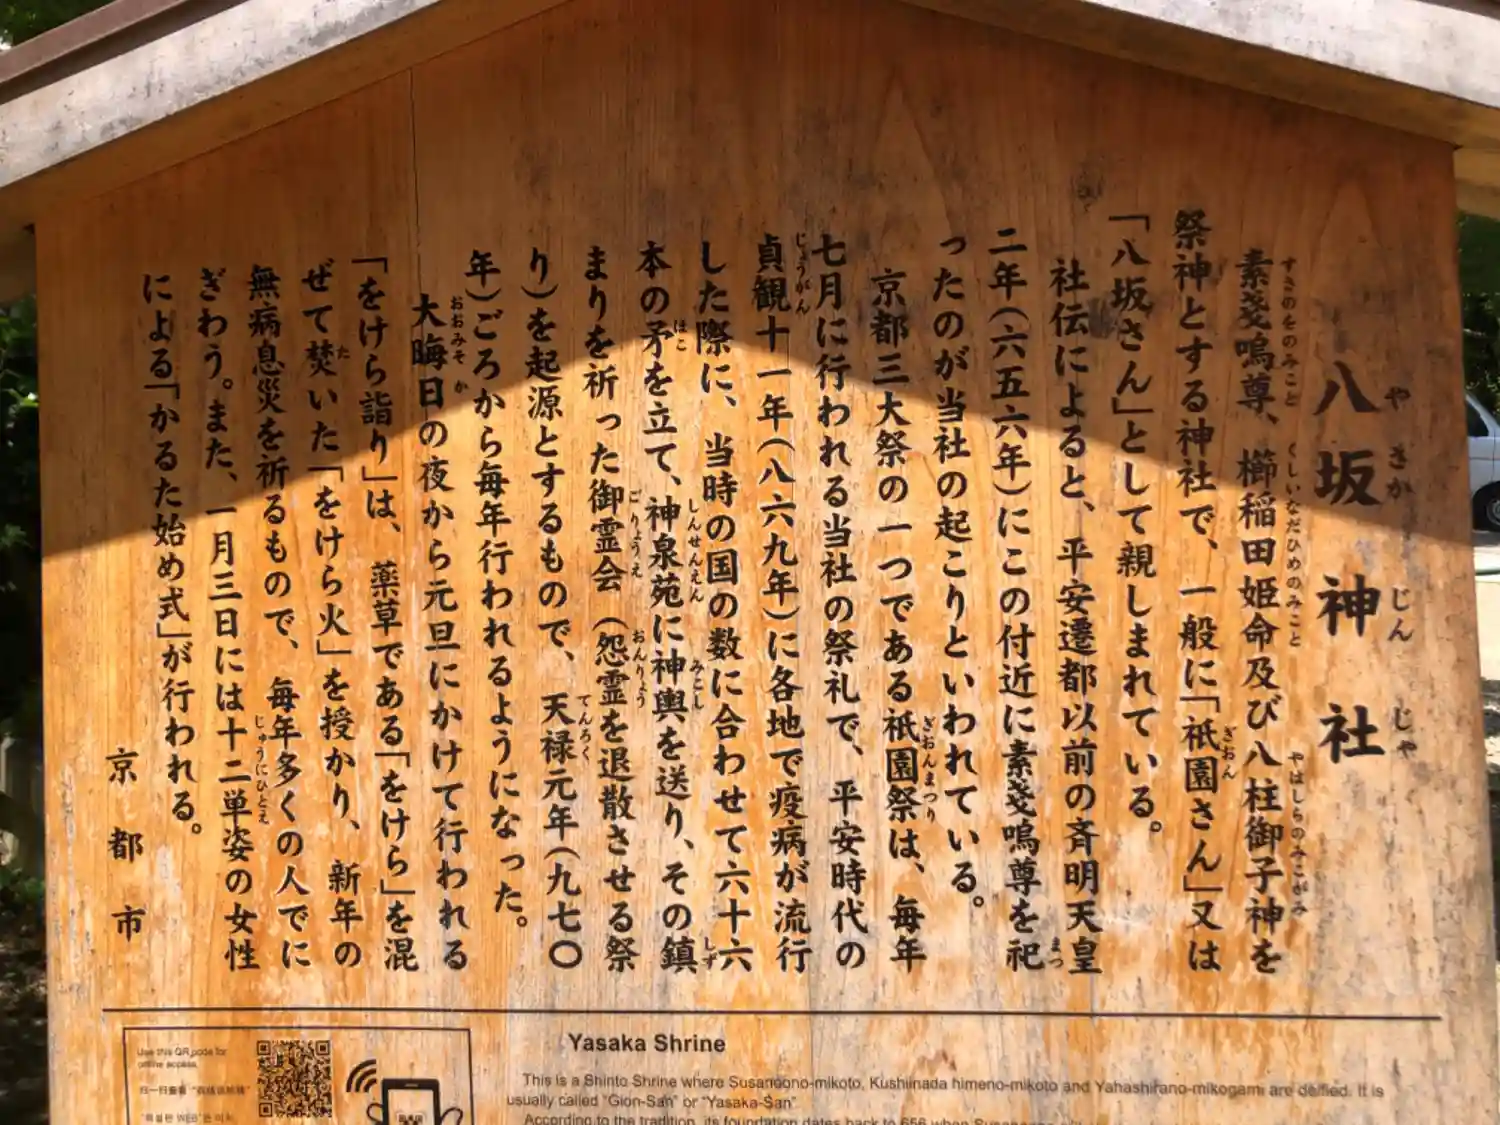 八坂神社
やさかじんじゃ
素戔嗚尊、櫛稲田姫命及び八柱御子神を
すさのをのみこと くしいなだひめのみこと やはしらのみこがみ
祭神とする神社で、一般に「祇園さん」又は
ぎおん
「八坂さん」として親しまれている。
社伝によると、平安遷都以前の斉明天皇
二年(六五六年)にこの付近に素戔嗚尊を祀
まつ
ったのが当社の起こりといわれている。
京都三大祭の一つである祇園祭は、毎年
ぎおんまつり
七月に行われる当社の祭礼で、平安時代の
貞観十一年(八六九年)に各地で疫病が流行
じょうがん
した際に、当時の国の数に合わせて六十六
本の矛を立て、神泉苑に神輿を送り、その鎮
ほこ しんせんえん みこし しず
まりを祈った御霊会(怨霊を退散させる祭
ごりょうえ おんりょう
り)を起源とするもので、天禄元年(九七〇
てんろく
年)ごろから毎年行われるようになった。
大晦日の夜から元旦にかけて行われる
おおみそか
「をけら詣り」は、薬草である「をけら」を混
ぜて焚いた「をけら火」を授かり、新年の
た
無病息災を祈るもので、毎年多くの人でに
ぎわう。また、一月三日には十二単姿の女性
じゅうにひとえ
による「かるた始め式」が行われる。
京都市
Use this QR code for
online access.
Yasaka Shrine
This is a Shinto Shrine where Susanoono-mikoto, Kushiinada himeno-mikoto and Yahashirano-mikogami are deified. It is
usually called "Gion-San" or "Yasaka-San"
According to the tradition, its foundation dates back to 656 when